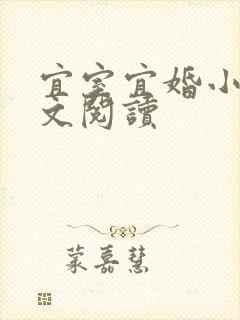 宜室宜婚小
文閱讀
蒙嘉慧